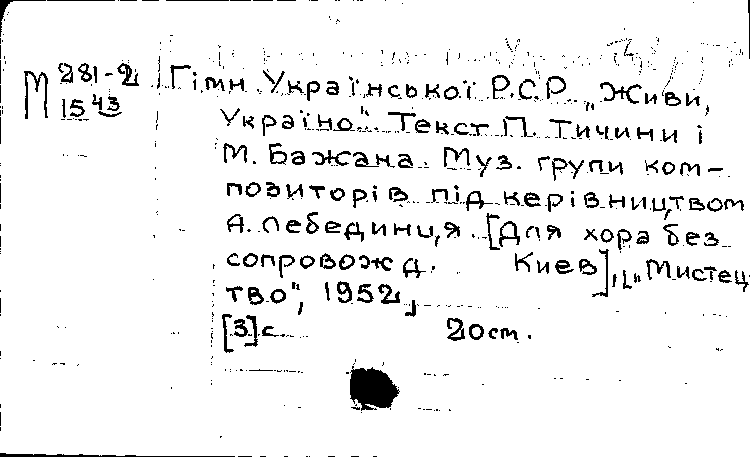 М 281-2
1543
Гімн Української Р.С.Р. „Живи,
Україно". Текст П. Тичини і
М. Бажана. Муз. групи ком-
позиторів під керівництвом
А. Лебединця. [Для хора без
сопровожд. Киев], [„Мистец
тво", 1952]
[3]с 20 ст.